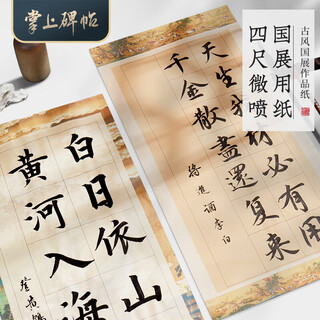 掌上碑帖
古风国展作品纸
国展用纸
四尺微喷
天生我材必有用
千金散盡還复来
將進酒李白
白日依山
黄河入海